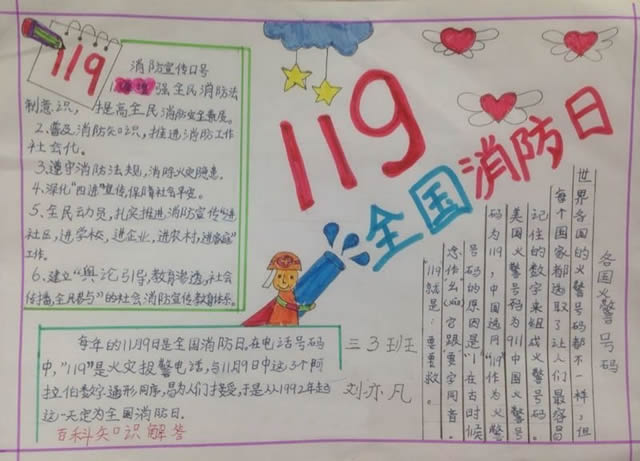 119
消防宣传口号
1.增强全民消防法
制意识，提高全民消防安全素质。
2.普及消防知识，推进消防工作
社会化。
3.遵守消防法规，消除火灾隐患。
4.深化“四进”宣传，保障社会平安。
5.全民动员，扎实推进，消防宣传“进
社区，进学校，进企业，进农村，进家庭”
工作。
6.建立“舆论引导，教育渗透，社会
传播，全民参与”的社会消防宣传教育体系。
119
全国消防日
各国火警号码
世界各国的火警号码都不一样，但
每个国家都选取了让人们最容易
记住的数字来组成火警号码。
美国火警号码为911中国火警号
码为119，中国选用“119”作为火警
号码的原因是“1”在古时候
念作幺
跟“要”字同音。
“119就是：要要救。
每年的11月9日是全国消防日。在电话号码
中，“119”是火灾报警电话，与11月9日中这3个阿
拉伯数字遥形同序，易为人们接受，于是从1992年起
这一天定为全国消防日。
百科知识解答
三3班
刘亦凡